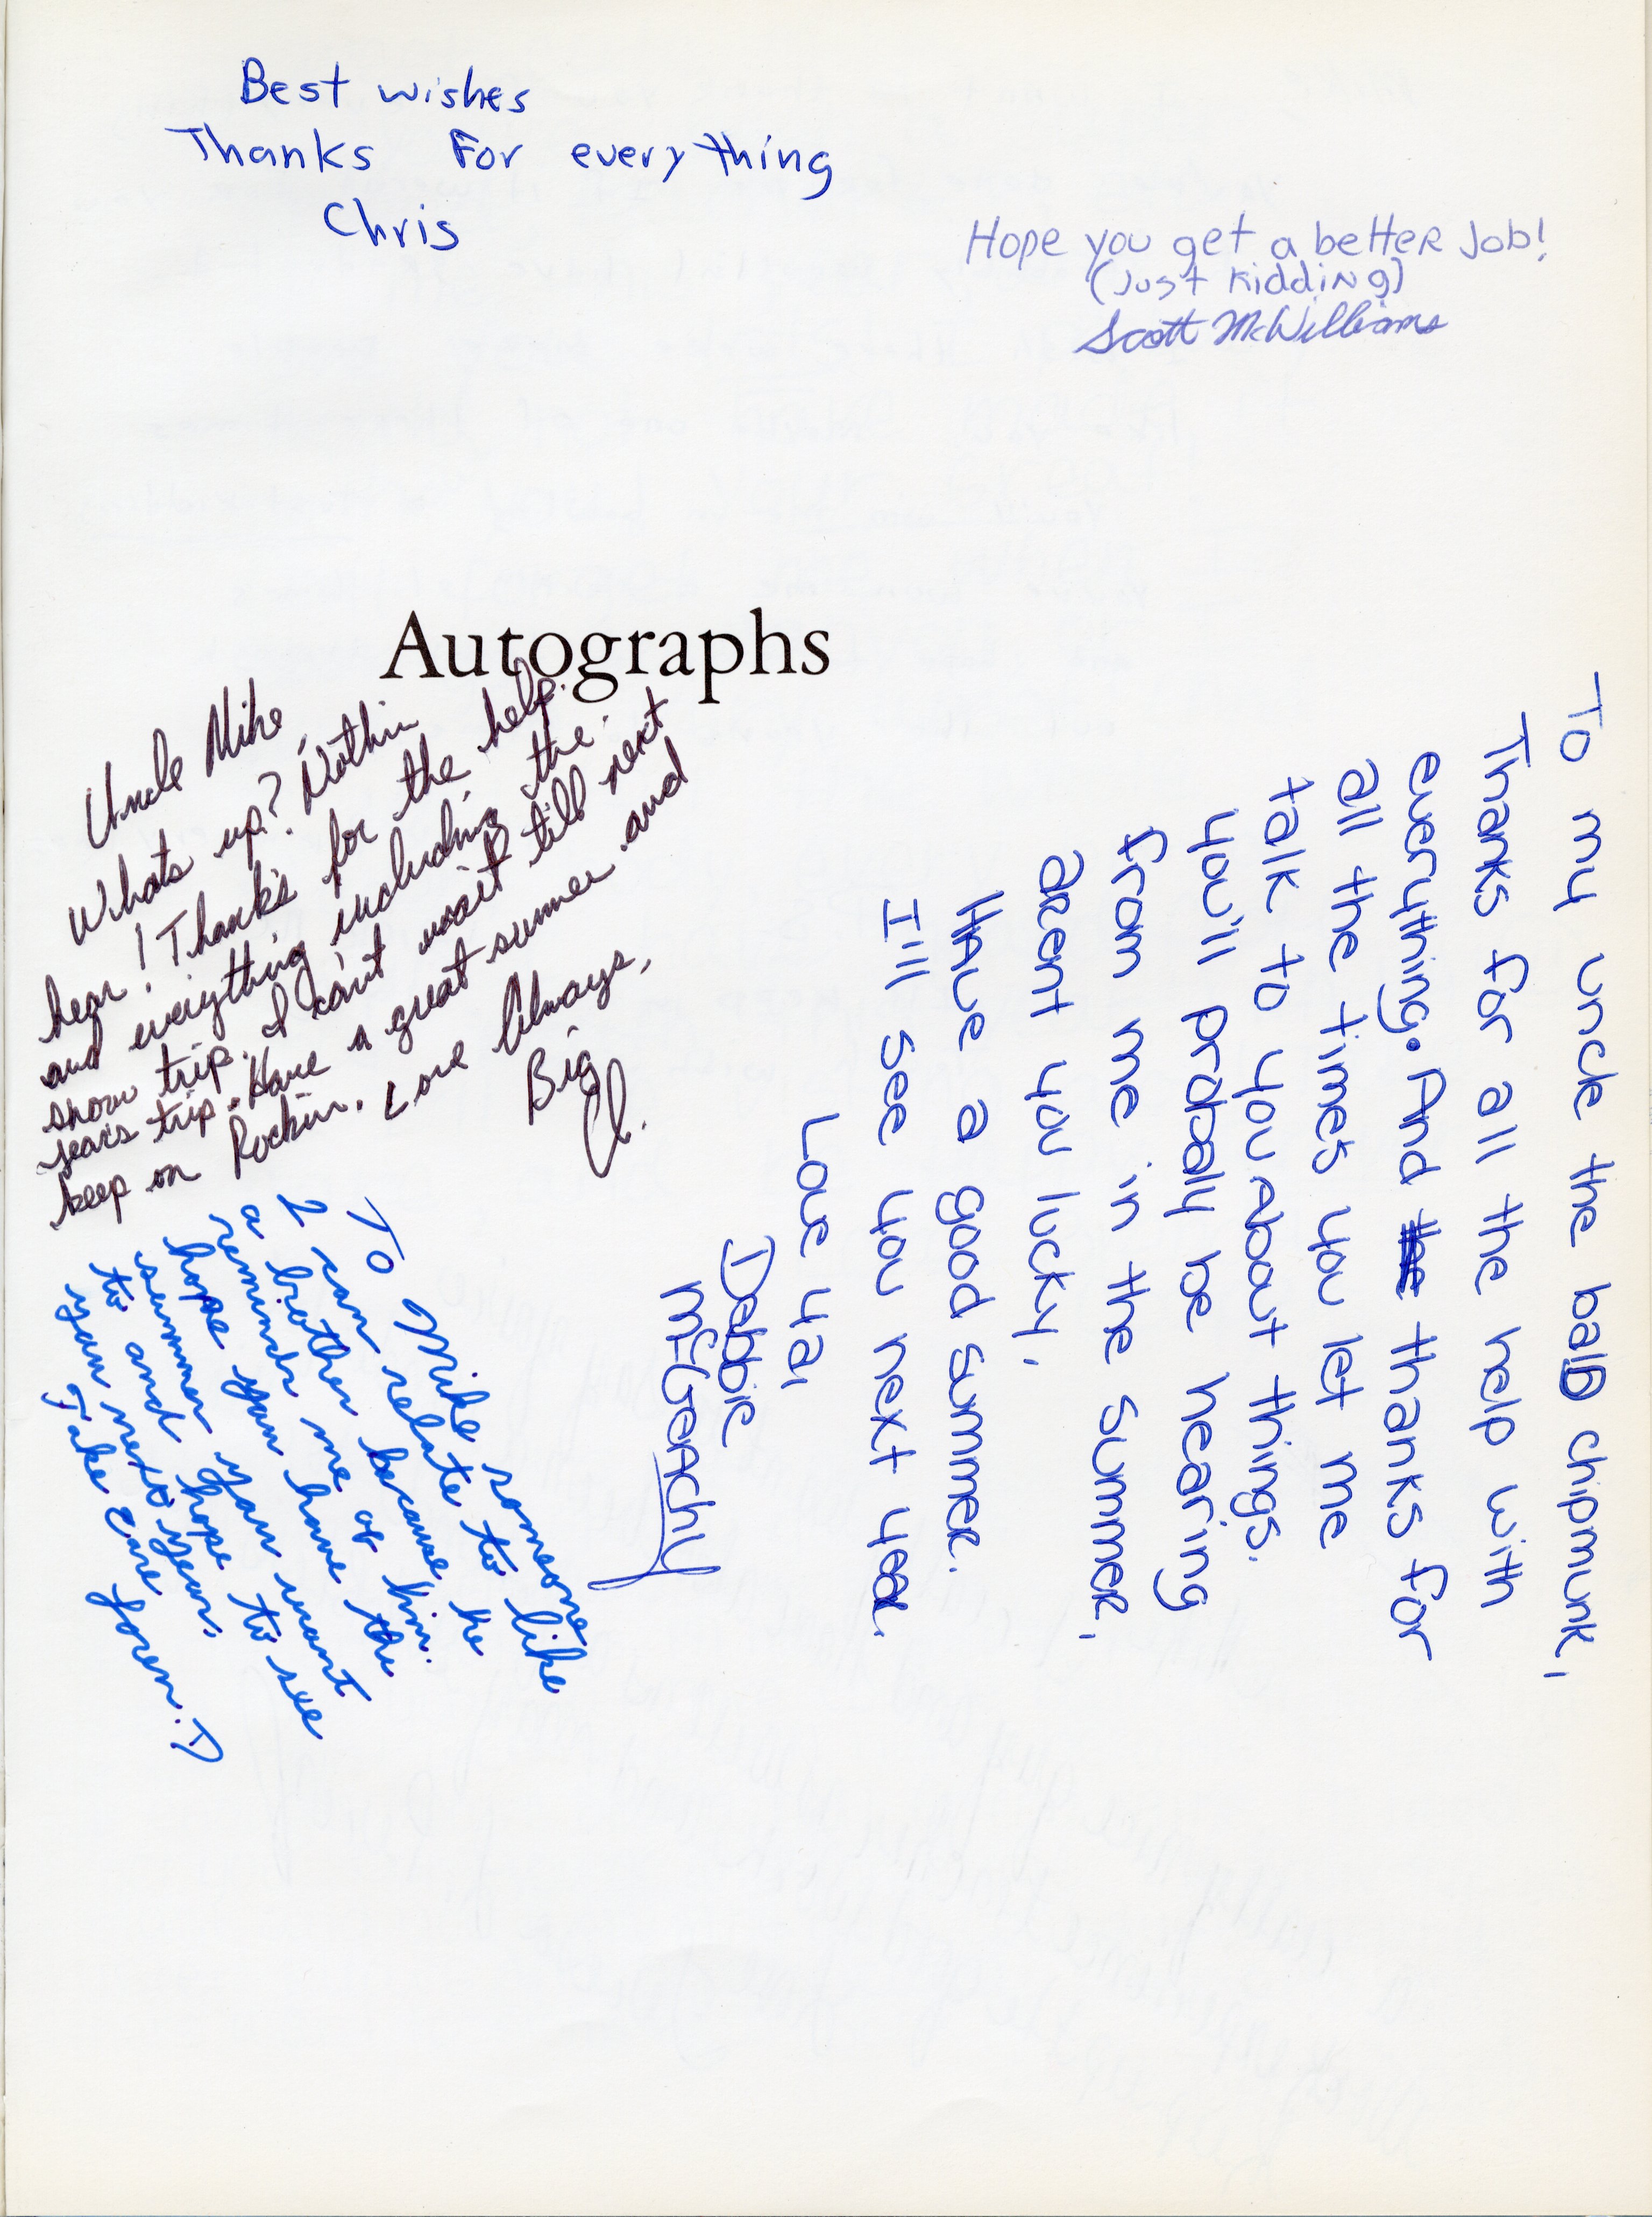 Best wishes
Thanks For everything
Chris
Hope you get a better Job!
(Just Kidding)
Scott McWilliams
Autographs
Uncle Mike,
Whats up? Nothin
hear! Thanks for the help
and everything including the
snow trip. I can't wait till next
years trip. Have a great summer and
keep on Rockin. Love Always,
Big
Al.
To Mike someone
I can relate to like
a brother because he
reminds me of him.
hope you have the
summer you want
to and hope to see
you next year.
Take Care
To my uncle the bald chipmunk,
Thanks for all the help with
everything. And the thanks for
all the times you let me
talk to you about things.
you'll probaly be hearing
from me in the summer,
arent you lucky,
Have a good summer.
I'll see you next year.
Love ya,
Debbie
McGeachy